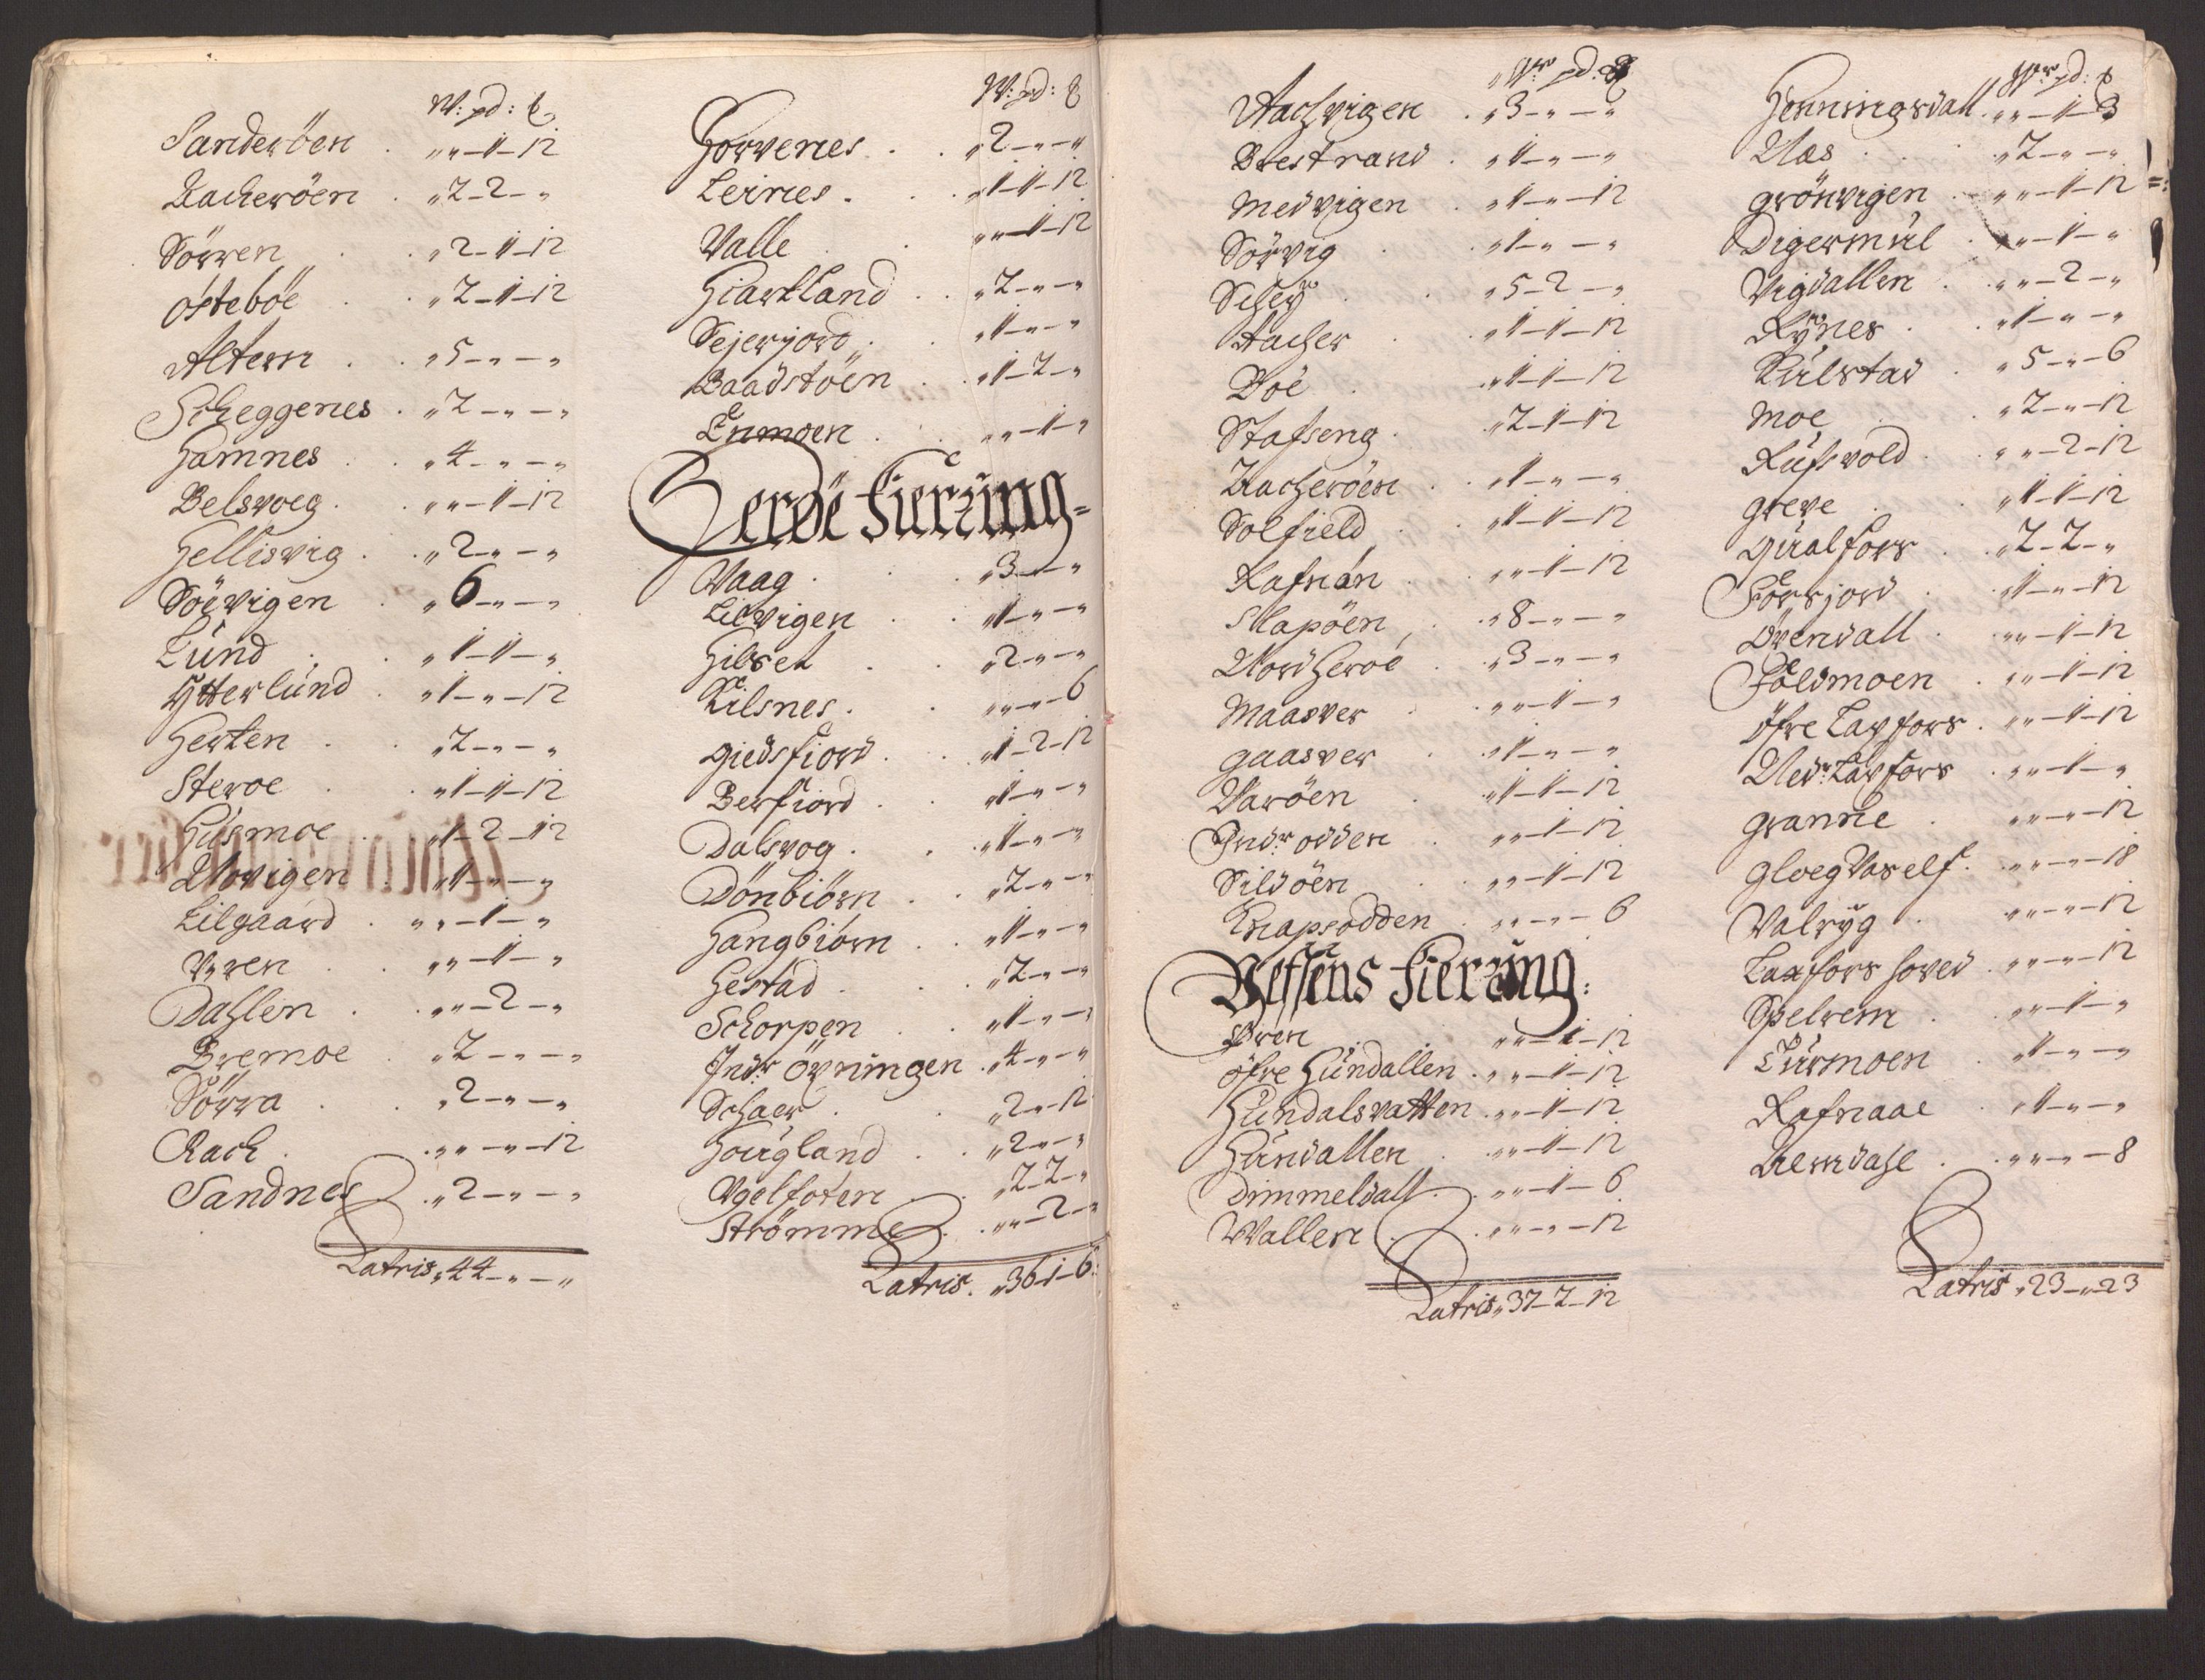 W: pd: ℔
Sanderöen . „ „ – 1 – 12
Racheröen . „ 2 – 2 – „
Sörren . . „ 2 – 1 – 12
Östeböe . „ 2 – 1 – 12
Altern . . „ 5 – „ – „
Scheggenes . „ 2 – „ – „
Hamnes . . „ 4 – „ – „
Belsvoeg . „ „ – 1 – 12
Hellisvig . „ 2 – „ – „
Söevigen . „ 6 – „ – „
Lund . . „ 1 – 1 – „
Ytterlund . „ 1 – „ – 12
Herten . . „ 2 – „ – „
Steroe . . „ 1 – 1 – 12
Husmoe . „ 1 – 2 – 12
Novigen . „ 1 – „ – „
Lilgaard . „ „ – 1 – „
Vren . . „ „ – 1 – „
Dahlen . . „ „ – 2 – „
Bremoe . „ 2 – „ – „
Sörra . . „ 2 – „ – „
Rach . . „ „ – „ – 12
Sandnes . „ 2 – „ – „
Latris „ 44 – „ – „
W: pd: ℔
Horvenes . . „ 2 – „ – „
Leirnes . . „ 1 – 1 – 12
Valle . . „ „ – 1 – 12
Hiartland . . „ 2 – „ – „
Sejerjord . „ 1 – „ – „
Baadstöen . „ 1 – 2 – „
Enmoen . . „ „ – 1 – „
Herøe Fierring =
Vaag . . „ 3 – „ – „
Lilvigen . . „ 1 – „ – „
Hilset . . „ 2 – „ – „
Kilsnes . . „ „ – „ – 6
Giedsfiord . „ 1 – 2 – 12
Berfiord . . „ 1 – „ – „
Dalsvog . . „ 1 – „ – „
Dönbiörn . . „ 2 – „ – „
Hangbiörn . . „ 1 – „ – „
Hestad . . „ 2 – „ – „
Schorpen . . „ 1 – „ – „
Indr Övningen . „ 4 – „ – „
Schaer . . „ 2 – „ – 12
Hougland . . „ 2 – „ – „
Vgelfoten . „ 2 – 2 – „
Strömme . „ „ – 2 – „
Latris . „ 36 – 1 – 6 :
Wr pd: ℔
Aachvigen . „ 3 – „ – „
Brestrand . „ 1 – „ – „
Medvigen . „ 1 – „ – 12
Sörvig . „ 1 – „ – „
Schey . . „ 5 – 2 – „
Aacher . „ 1 – 1 – 12
Boe . . „ 1 – 1 – 12
Stafseng . „ 2 – 1 – 12
Zacheröen . „ 1 – „ – „
Solfield . „ 1 – 1 – 12
Rafnån . „ „ – 1 – 12
Slapöen . „ 8 – „ – „
Nordheroe . „ 3 – „ – „
Maasver . „ „ – 1 – „
Gaasver . „ 1 – „ – „
Varöen . „ 1 – 1 – 12
Indr odden . „ „ – 1 – 12
Sildöen . „ „ – 1 – 12
Knapsodden . „ „ – „ – 6
Vefsens Fierring :
Øren „ „ – 1 – 12
öfre Hundallen . „ „ – 1 – 12
Hundalsvatten . „ „ – 1 – 12
Hundallen . „ „ – 1 – 12
Dimmeldall . „ „ – 1 – 6
Wallen . „ „ – „ – 12
Latris „ 37 – 2 – 12
Wr pd: ℔
Henningsdall . „ „ – 1 – 3
Næs . . „ 2 – „ – „
Grönvigen . „ „ – 1 – 12
Digermul . „ „ – 1 – „
Vigdallen . „ „ – 2 – „
Rynes . . „ 1 – „ – „
Kulstad . „ 5 – „ – 6
Moe . . „ 2 – „ – 12
Rufsvold . „ „ – 2 – 12
Greve . . „ 1 – 1 – 12
Gualfors . „ 2 – 2 – „
Forsjord . „ 1 – „ – 12
Övendall . „ „ – 1 – 12
Földmoen . „ „ – 1 – 12
Öfre Laxfors . „ „ – 1 – 12
Nedr Laxfors . „ „ – 1 – „
Granne . „ „ – „ – 12
Gloegvaself . „ „ – „ – 18
Valryg . „ „ – „ – 12
Laxfors hoved . „ „ – „ – 12
Spelrem . „ „ – 1 – „
Turmoen . „ 1 – „ – „
Rafnaae . „ 1 – „ – „
Remdahl . „ „ – „ – 8
Latris „ 23 – „ – 23